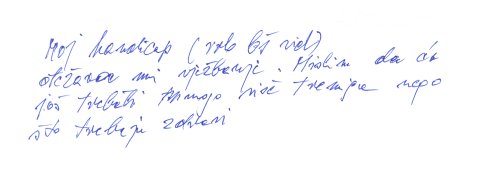 Moj handicap (vrlo loš vid)
otežava mi vježbanje. Mislim da ću
još trebati mnogo više treninga nego
što trebaju zdravi